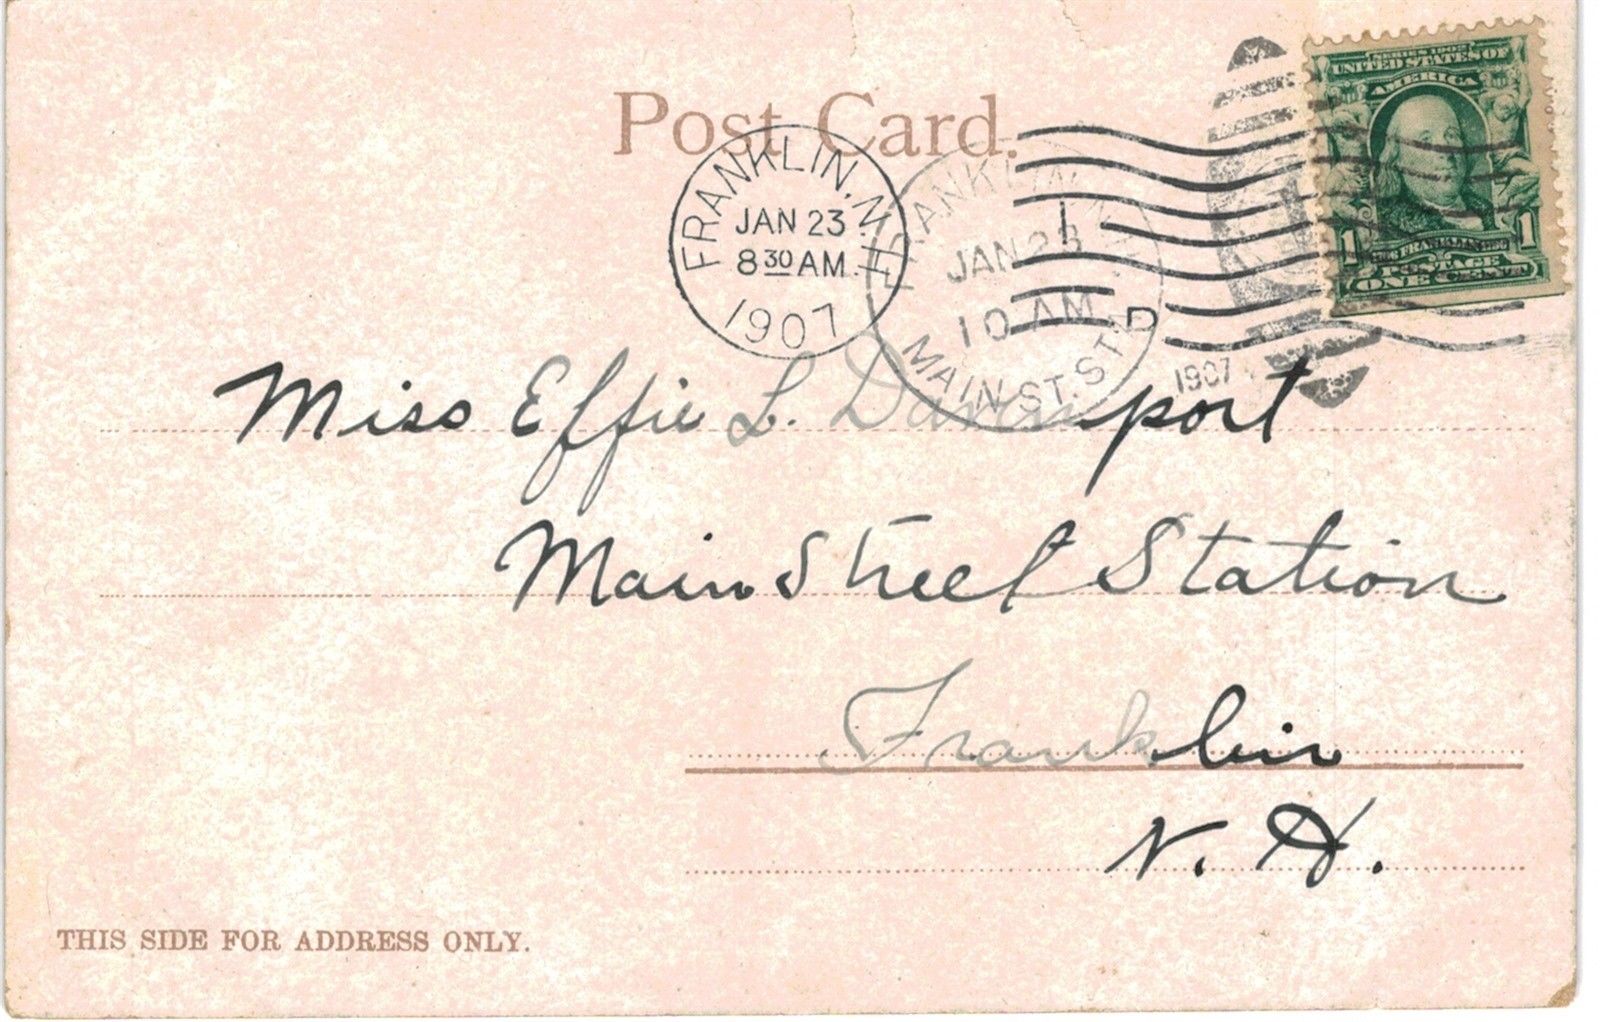 Post Card.
FRANKLIN, N.H.
JAN 23
8 30 AM.
1907
FRANKLIN, N.H.
JAN 23
10 AM
MAIN ST. STA.
1907
D
SERIES 1902
UNITED STATES OF
AMERICA
1 1
FRANKLIN
POSTAGE
ONE CENT
Miss Effie L. Davenport
Main Street Station
Franklin
N. H.
THIS SIDE FOR ADDRESS ONLY.